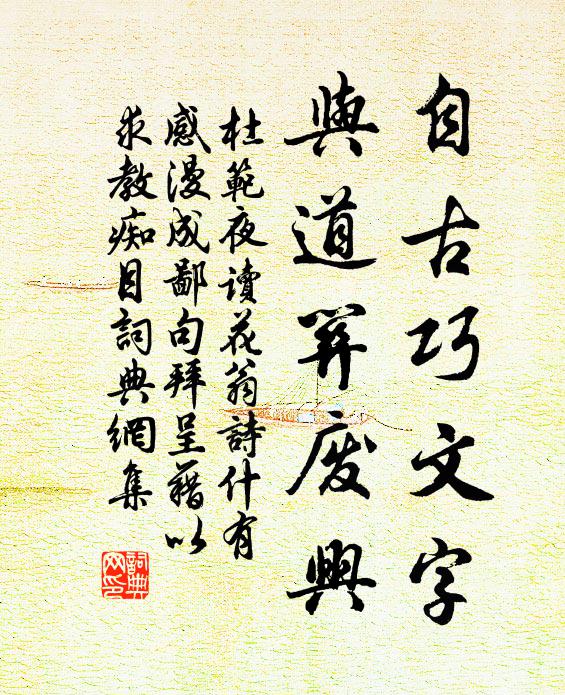 自古巧文字
與道廢興
杜範夜讀花翁詩什有
感漫成鄙句拜呈藉以
求教痴目詞典網集
詞典網印